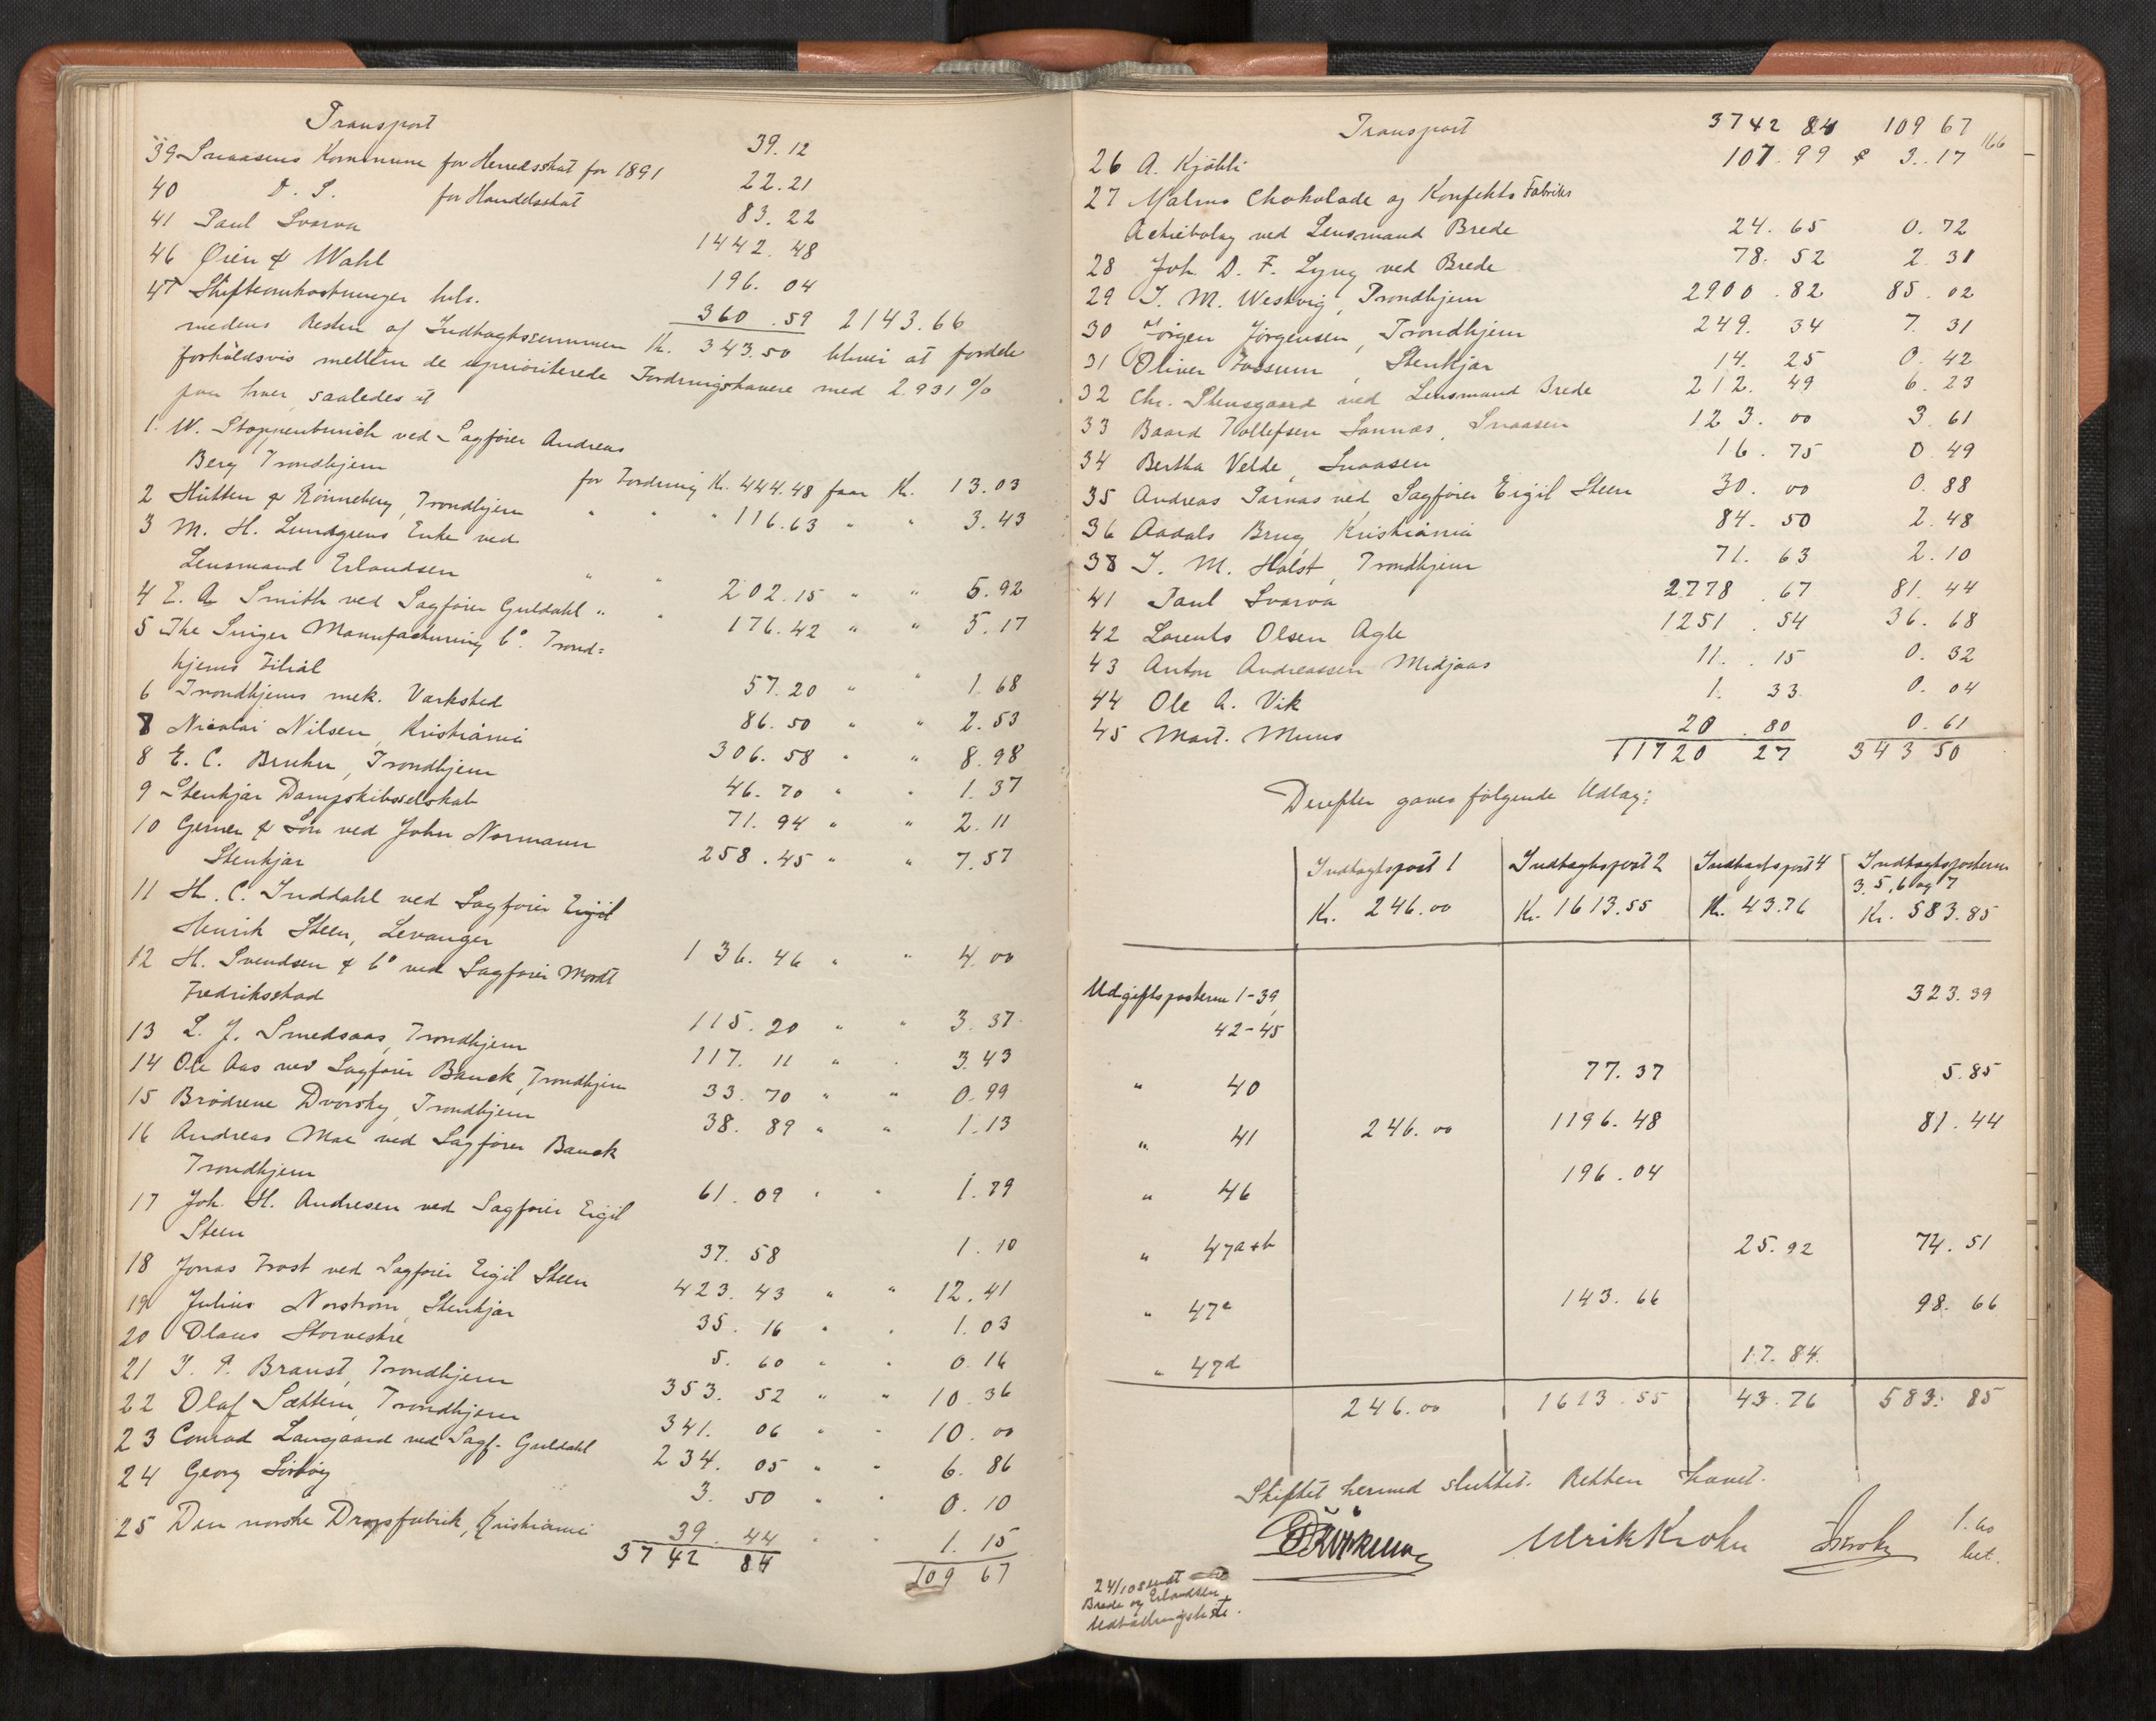 Transport 39.12
39 Snaasens Kommune for Herredsskat for 1891 22.21
40 D. S. for Handelsskat 83.22
41 Paul Svarva 1442.48
46 Øien & Wahl 196.04
47 Skifteomkostninger hele. 360.59 2143.66
medens Resten af Indtægtssummen Kr. 343.50 bliver at fordele
forholdsvis mellem de uprioriterede Fordringshavere med 2.931 %
paa hver, saaledes at
1. W. Stoppenbrinck ved Sagfører Andreas
Berg Trondhjem for Fordring Kr. 444.48 faar Kr. 13.03
2 Hütten & Rönneberg, Trondhjem " " " 116.63 " " 3.43
3 M. H. Lundgrens Enke ved
Lensmand Erlandsen " " 202.15 " " 5.92
4 E. A. Smith ved Sagfører Guldahl " " 176.42 " " 5.17
5 The Singer Manufacturing Co. Trond=
hjems Filial 57.20 " " 1.68
6 Trondhjems mek. Værksted 86.50 " " 2.53
7 Nicolai Nilsen, Kristiania 306.58 " " 8.98
8 E. C. Bruhn, Trondhjem 46.70 " " 1.37
9 Stenkjær Dampskibsselskab 71.94 " " 2.11
10 Gerner & Søn ved John Normann
Stenkjær 258.45 " " 7.57
11 H. C. Inddahl ved Sagfører Eigil
Henrik Steen, Levanger 136.46 " " 4.00
12 H. Svendsen & Co ved Sagfører Mordt
Fredriksstad 115.20 " " 3.37
13 L. J. Smedsaas, Trondhjem 117.11 " " 3.43
14 Ole Aas ved Sagfører Bauck, Trondhjem 33.70 " " 0.99
15 Brødrene Dvorsky, Trondhjem 38.89 " " 1.13
16 Andreas Moe ved Sagfører Bauck
Trondhjem 61.09 " " 1.79
17 Joh. H. Andresen ved Sagfører Eigil
Steen 37.58 1.10
18 Jonas Frost ved Sagfører Eigil Steen 423.43 " " 12.41
19 Julius Norstrøm, Stenkjær 35.16 " " 1.03
20 Olaus Storvestre 5.60 " " 0.16
21 I. P. Branst, Trondhjem 353.52 " " 10.36
22 Olaf Sættem, Trondhjem 341.06 " " 10.00
23 Conrad Langaard ved Sagf. Guldahl 234.05 " " 6.86
24 Georg Sörhöy 3.50 " " 0.10
25 Den norske Dropsfabrik, Kristiania 39.44 " " 1.15
3742 84 109 67
166
Transport 3742 84 109 67
26 A. Kjöbli 107.99 3.17
27 Malmø Chokolade og Konfekts Fabriks
Actiebolag ved Lensmand Brede 24.65 0.72
28 Joh. D. F. Lyng ved Brede 78.52 2.31
29 I. M. Westvig, Trondhjem 2900.82 85.02
30 Jørgen Jørgensen, Trondhjem 249.34 7.31
31 Oliver Fossum, Stenkjær 14.25 0.42
32 Chr. Stensgaard ved Lensmand Brede 212.49 6.23
33 Baard Tollefsen Sannæs, Snaasen 123.00 3.61
34 Bertha Velde, Snaasen 16.75 0.49
35 Andreas Parnas ved Sagfører Eigil Steen 30.00 0.88
36 Aadals Brug, Kristiania 84.50 2.48
38 I. M. Holst, Trondhjem 71.63 2.10
41 Paul Svarva 2778.67 81.44
42 Lorents Olsen Agle 1251.54 36.68
43 Anton Andreassen Midjaas 11.15 0.32
44 Ole A. Vik 1.33 0.04
45 Mart. Muus 20.80 0.61
11720 27 343 50
Derefter gaves følgende Udlæg:
Indtægtspost 1 Indtægtspost 2 Indtægtspost 4 Indtægtsposterne
3, 5, 6 og 7
Kr. 246.00 Kr. 1613.55 Kr. 43.76 Kr. 583.85
Udgiftsposterne 1-39, 323.39
42-45
" 40 77.37 5.85
" 41 246.00 1196.48 81.44
" 46 196.04
" 47a+b 25.92 74.51
" 47c 143.66 98.66
" 47d 17.84
246.00 1613.55 43.76 583.85
Skiftet hermed sluttet. Retten hævet.
Ulrik Krohn
24/10 sendt
Brede og Erlandsen
Udbetalingsliste.